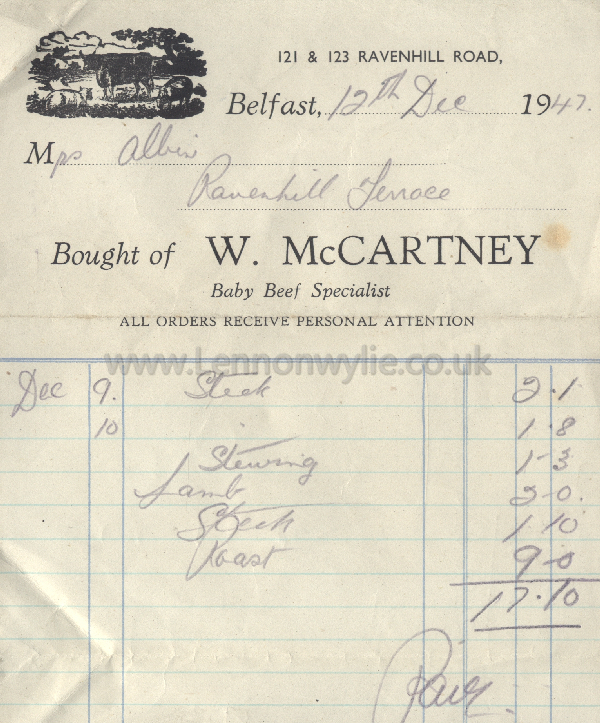 121 & 123 RAVENHILL ROAD,
Belfast, 12th Dec 1947.
Mrs Albin
Ravenhill Terrace
Bought of W. McCARTNEY
Baby Beef Specialist
ALL ORDERS RECEIVE PERSONAL ATTENTION
www.Lennonwylie.co.uk
Dec 9. Steak 2.1
10 1.8
Stewing 1-3
Lamb 2-0.
Steak 1.10
Roast 9-0
17.10
Paid